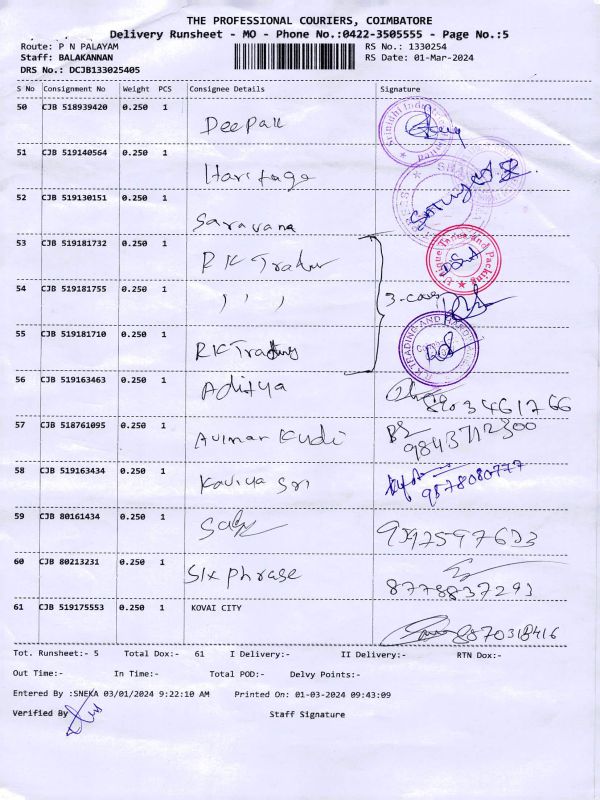 THE PROFESSIONAL COURIERS, COIMBATORE
Delivery Runsheet - MO - Phone No.:0422-3505555 - Page No.:5
Route: P N PALAYAM RS No.: 1330254
Staff: BALAKANNAN RS Date: 01-Mar-2024
DRS No.: DCJB133025405
S No Consignment No Weight PCS Consignee Details Signature
50 CJB 518939420 0.250 1
Deepak
51 CJB 519140564 0.250 1
Haritage
52 CJB 519130151 0.250 1
Saravana
53 CJB 519181732 0.250 1
RK Trader
Unique Tapes and Packing
54 CJB 519181755 0.250 1
, , ,
3-
55 CJB 519181710 0.250 1
RK Trading
56 CJB 519163463 0.250 1
Aditya
57 CJB 518761095 0.250 1
9843712300
58 CJB 519163434 0.250 1
Kaviya Sri
9878080777
59 CJB 80161434 0.250 1
60 CJB 80213231 0.250 1
Six Phrase
8778837291
61 CJB 519175553 0.250 1 KOVAI CITY
8870318416
Tot. Runsheet:- 5 Total Dox:- 61 I Delivery:- II Delivery:- RTN Dox:-
Out Time:- In Time:- Total POD:- Delvy Points:-
Entered By :SNEKA 03/01/2024 9:22:10 AM Printed On: 01-03-2024 09:43:09
Verified By Staff Signature